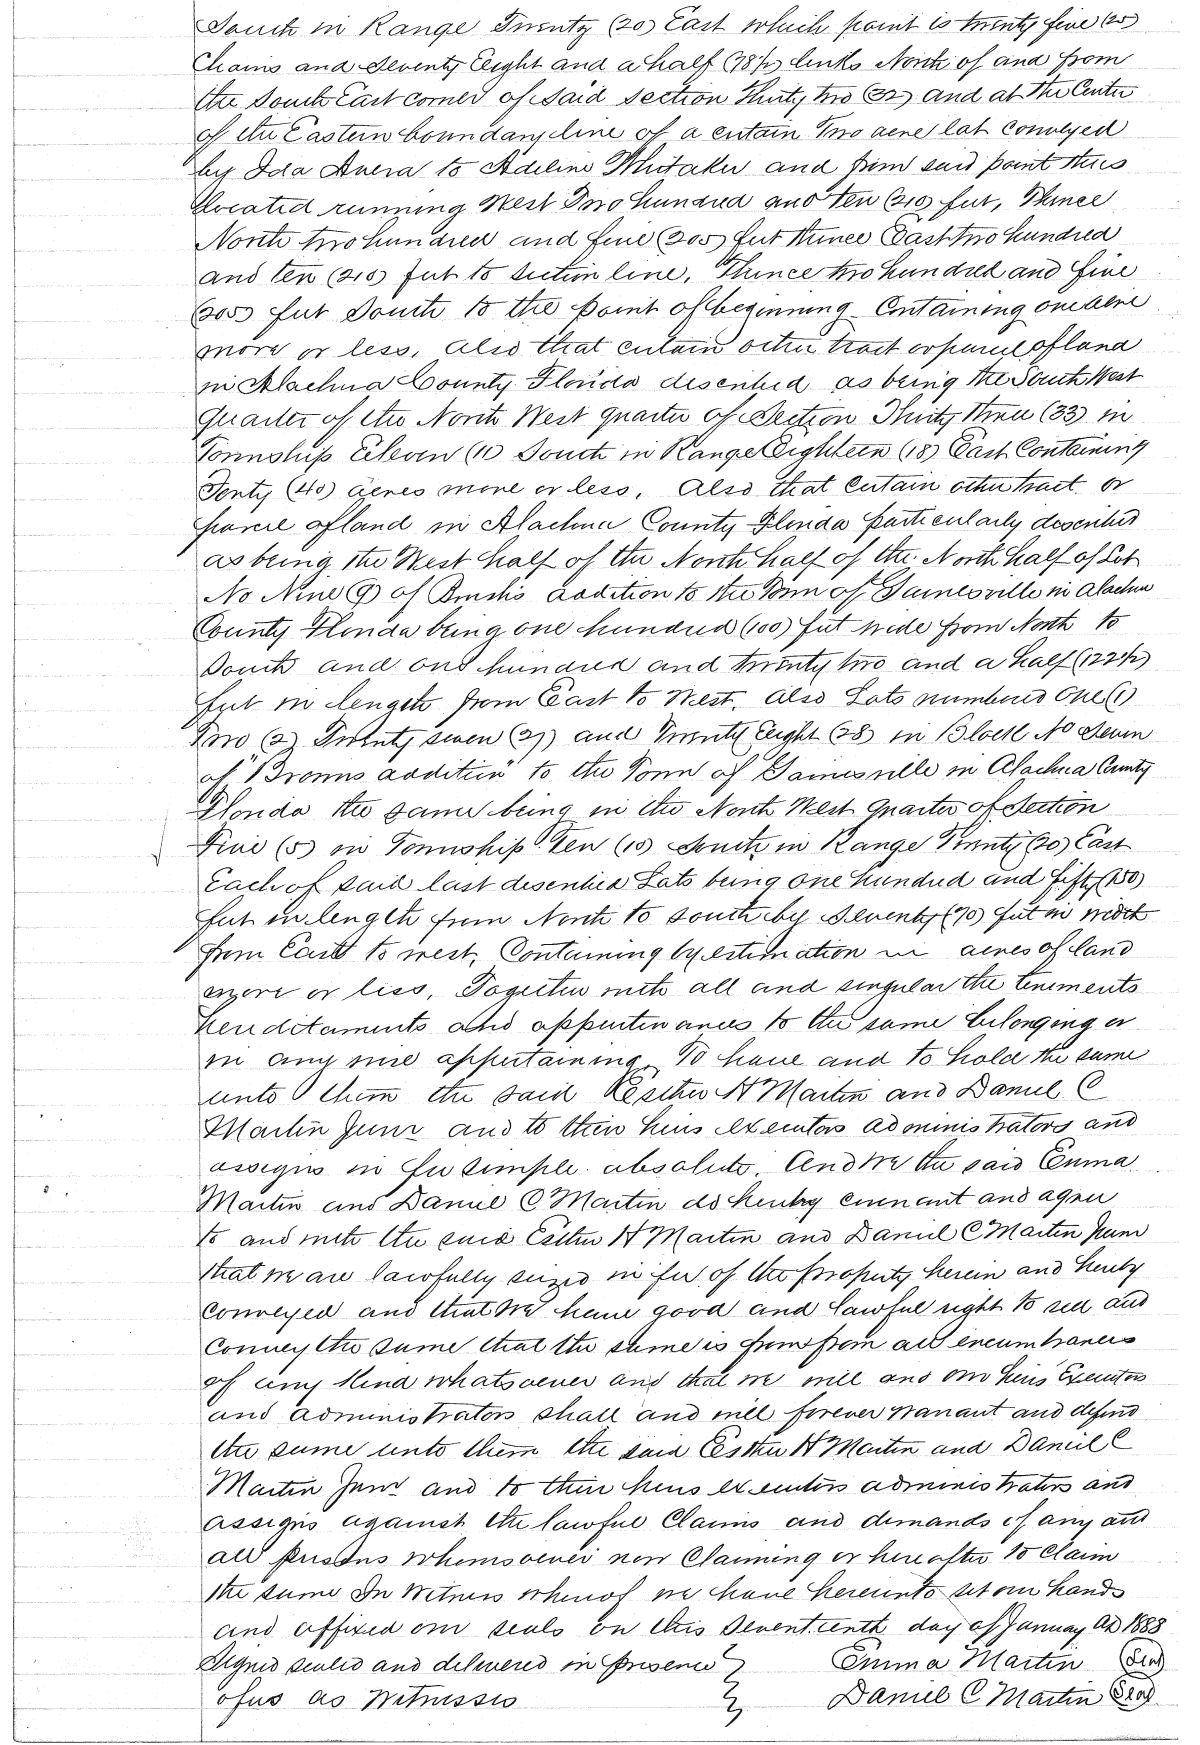 South in Range Twenty (20) East which point is twenty five (25)
Chains and Seventy Eight and a half (78½) links North of and from
the South East corner of said section Thirty two (32) and at the Center
of the Eastern boundary line of a certain Two acre lot conveyed
by Ida Avera to Adeline Whitaker and from said point thus
located running West Two hundred and Ten (210) feet, Thence
North two hundred and five (205) feet thence East two hundred
and ten (210) feet to section line, Thence two hundred and five
(205) feet South to the point of beginning Containing one acre
more or less, also that certain other tract or parcel of land
in Alachua County Florida described as being the South West
quarter of the North West quarter of Section Thirty Three (33) in
Township Eleven (11) South in Range Eighteen (18) East Containing
Forty (40) acres more or less, Also that Certain other tract or
parcel of land in Alachua County Florida particularly described
as being the West half of the North half of the North half of Lot
No Nine (9) of Brush's addition to the Town of Gainesville in Alachua
County Florida being one hundred (100) feet wide from North to
South and one hundred and twenty two and a half (122½)
feet in length from East to West, also Lots numbered One (1)
Two (2) Twenty seven (27) and Twenty Eight (28) in Block No Seven
of "Browns addition" to the Town of Gainesville in Alachua County
Florida the same being in the North West Quarter of Section
Five (5) in Township Ten (10) South in Range Twenty (20) East
Each of said last described Lots being one hundred and fifty (150)
feet in length from North to south by Seventy (70) feet in width
from East to west, Containing by estimation in acres of land
more or less, Together with all and singular the tenements
hereditaments and appurtenances to the same belonging or
in any wise appertaining To have and to hold the same
unto them the said Esther H Martin and Daniel C
Martin Junr and to their heirs executors administrators and
assigns in fee simple absolute. And we the said Emma
Martin and Daniel C Martin do hereby covenant and agree
to and with the said Esther H Martin and Daniel C Martin Junr
that we are lawfully seized in fee of the property herein and hereby
conveyed and that we have good and lawful right to sell and
convey the same that the same is free from all encumbrances
of any kind whatsoever and that we will and our heirs Executors
and administrators shall and will forever warrant and defend
the same unto them the said Esther H Martin and Daniel C
Martin Junr and to their heirs executors administrators and
assigns against the lawful Claims and demands of any and
all persons whomsoever now Claiming or hereafter to Claim
the same In Witness whereof we have hereunto set our hands
and affixed our seals on this Seventeenth day of January AD 1888
Signed sealed and delivered in presence } Emma Martin (Seal)
of us as Witnesses } Daniel C Martin (Seal)